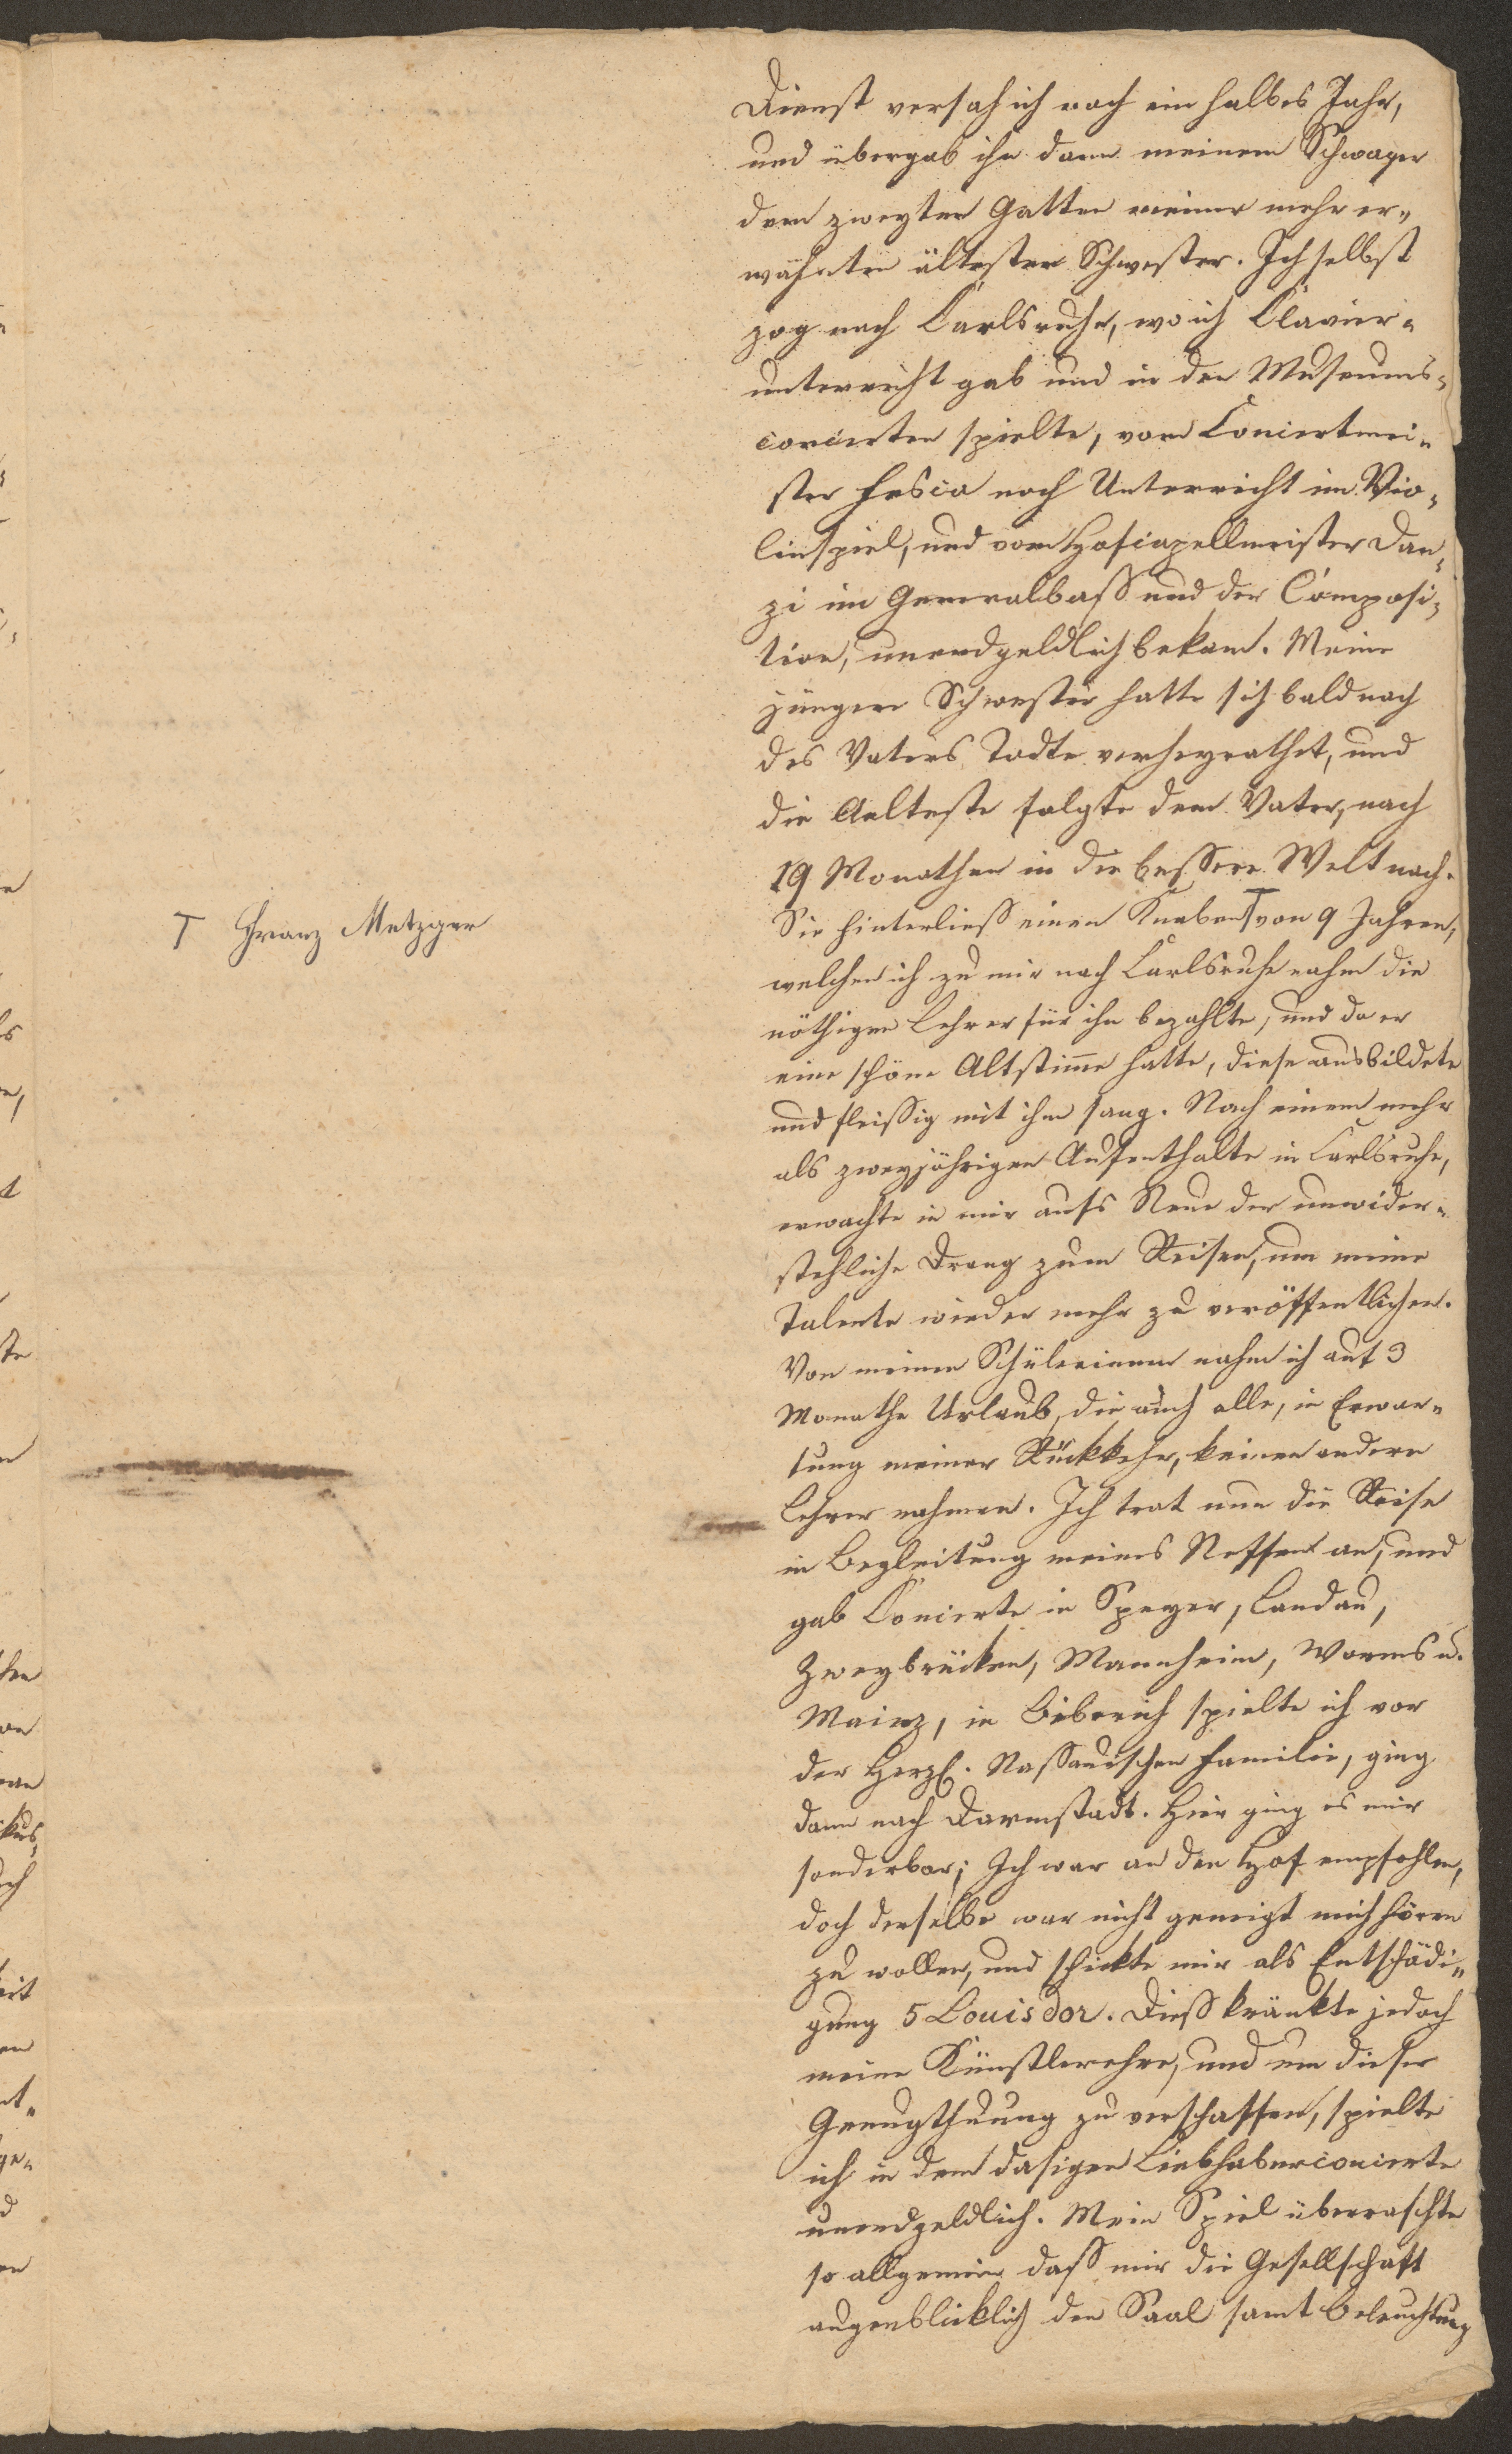 Dienst versah ich noch ein halbes Jahr,
und übergab ihn dann meinem Schwager
dem zweyten Gatten meiner mehr er„
wähnten ältesten Schwester. Ich selbst
zog nach Carlsruhe, wo ich Clavier„
unterricht gab und in den Museums„
concerten spielte, vom Concertmei„
ster Fesca noch Unterricht im Vio„
linspiel, und vom Hofcapellmeister Dan„
zi im Generalbaß und der Composi„
tion, unendgeldlich bekam. Meine
jüngere Schwester hatte sich bald nach
des Vaters Todte verheyrathet, und
die Aelteste folgte dem Vater, nach
19 Monathen in die bessere Welt nach.
Sie hinterließ einen Knaben T von 9 Jahren,
T Franz Metzger
welchen ich zu mir nach Carlsruhe nahm die
nöthigen Lehrer für ihn bezahlte, und da er
eine schöne Altstim̅e hatte, diese ausbildete
und fleißig mit ihm sang. Nach einem mehr
als zweyjährigen Aufenthalte in Carlsruhe,
erwachte in mir aufs Neue der unwider„
stehliche Drang zum Reisen, um meine
Talente wieder mehr zu veröffentlichen.
Von meinen Schülerinnen nahm ich auf 3
Monathe Urlaub, die auch alle, in Erwar„
tung meiner Rückkehr, keinen andern
Lehrer nahmen. Ich trat nun die Reise
in Begleitung meines Neffen an, und
gab Concerte in Speyer, Landau,
Zweybrücken, Mannheim, Worms u.
Mainz, in Biberich spielte ich vor
der Herzl. Nassauischen Familie, ging
dann nach Darmstadt. Hier ging es mir
sonderbar; Ich war an den Hof empfohlen,
doch derselbe war nicht geneigt mich hören
zu wollen, und schickte mir als Entschädi„
gung 5 Louisdor. Dieß kränkte jedoch
meine Künstlerehre, und um dieser
Genugthuung zu verschaffen, spielte
ich in dem dasigen Liebhaberconcerte
unendgeldlich. Mein Spiel überraschte
so allgemein daß mir die Gesellschaft
augenblicklich den Saal samt Beleuchtung